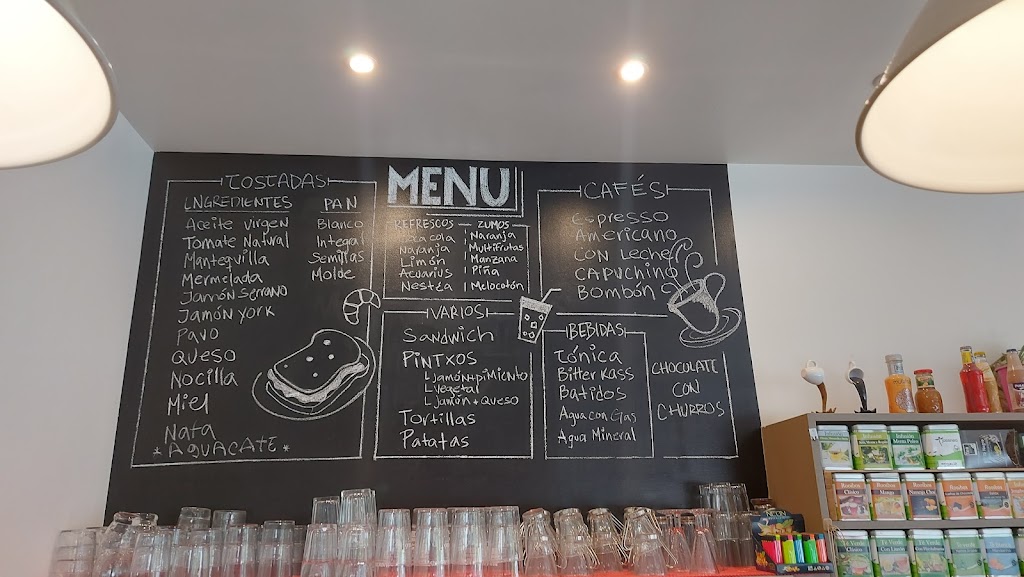 MENU
TOSTADAS
INGREDIENTES
Aceite virgen
Tomate Natural
Mantequilla
Mermelada
Jamón Serrano
Jamón York
Pavo
Queso
Nocilla
Miel
Nata
* AGUACATE *
PAN
Blanco
Integal
Semillas
Molde
REFRESCOS
Coca cola
Naranja
Limón
Acuarius
Nestéa
ZUMOS
Naranja
Multifrutas
Manzana
Piña
Melocotón
CAFÉS
Espresso
Americano
CON Leche
CAPUCHINO
Bombón
VARIOS
Sandwich
PINTXOS
L Jamón+piMiento
L Vegetal
L Jamón+Queso
Tortillas
Patatas
BEBIDAS
Tónica
Bitter Kass
Batidos
Agua con Gas
Agua Mineral
CHOCOLATE
CON
CHURROS